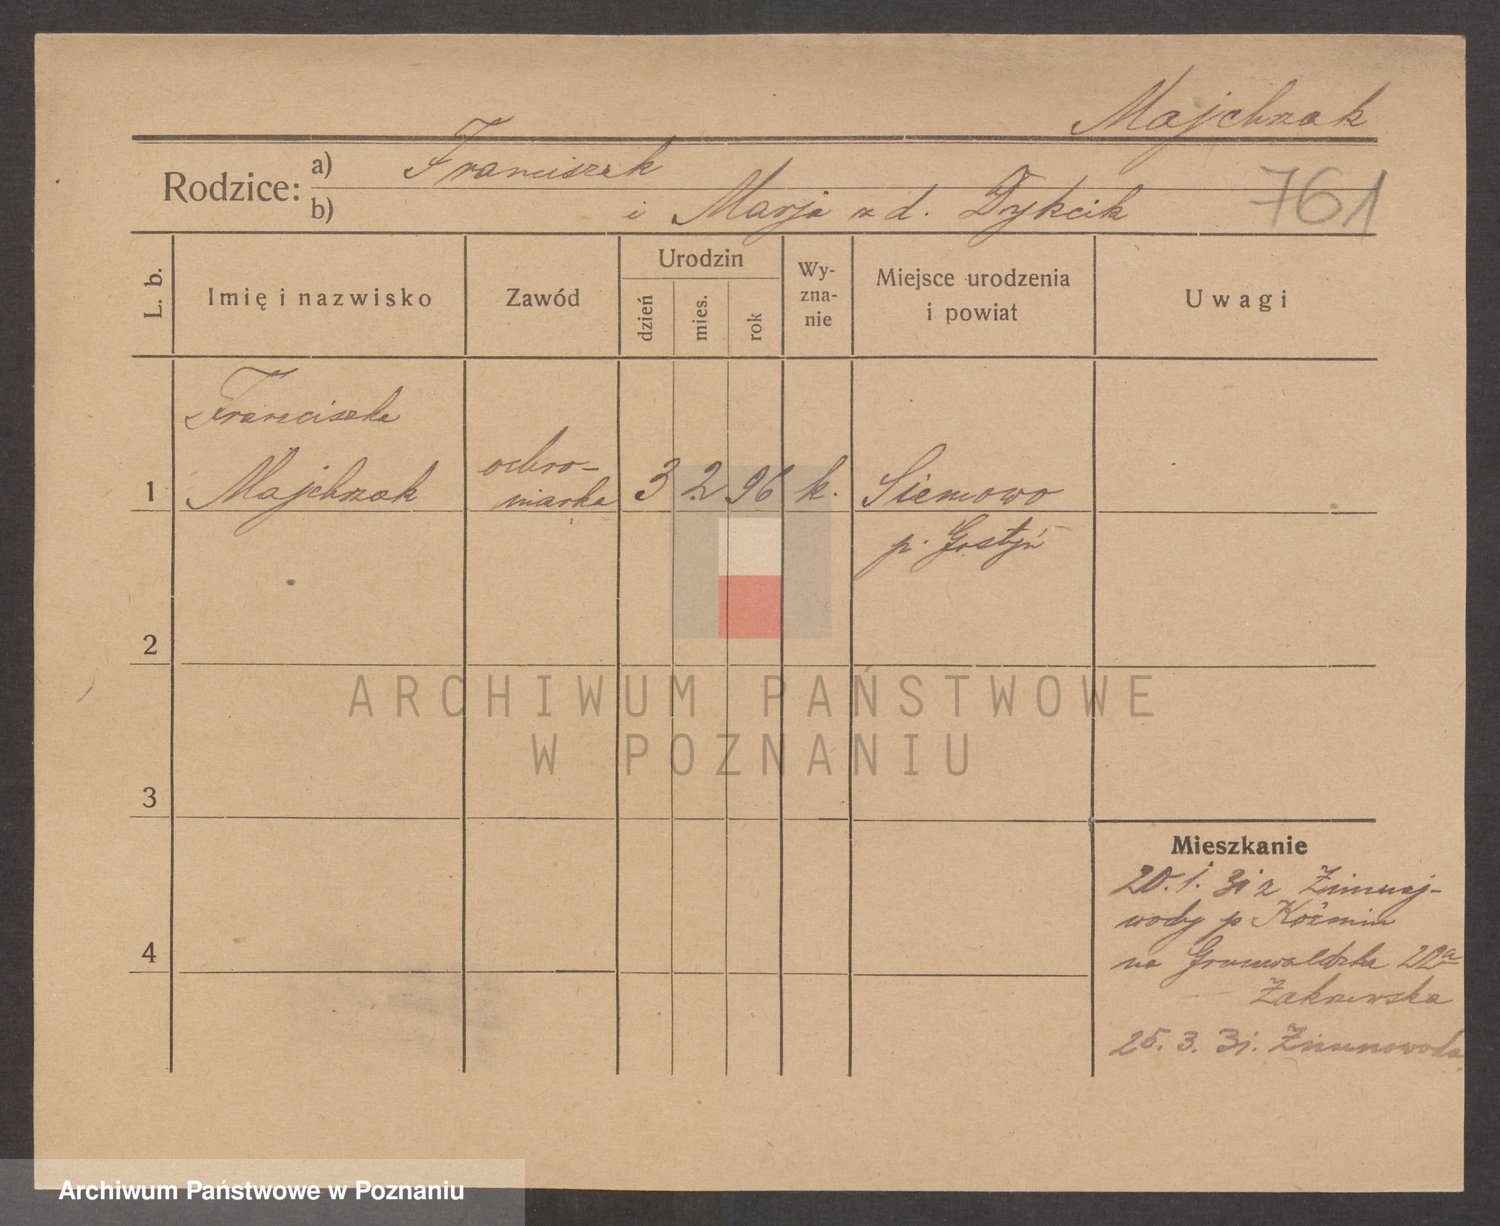 Majchrzak
Rodzice: a) Franciszek
b) i Marja z d. Dykcik
761
L. b.
Imię i nazwisko
Zawód
Urodzin
dzień
mies.
rok
Wy-
zna-
nie
Miejsce urodzenia
i powiat
Uwagi
Franciszka
1 Majchrzak
ochro-
niarka
3 2 96 k. Siemowo
p. Gostyń
2
3
4
Mieszkanie
20. 1. 31 z Zimnej-
wody p Koźmin
na Grunwaldzka 20a
Zakrzewska
25. 3. 31. Zimnowoda
ARCHIWUM PAŃSTWOWE
W POZNANIU
Archiwum Państwowe w Poznaniu